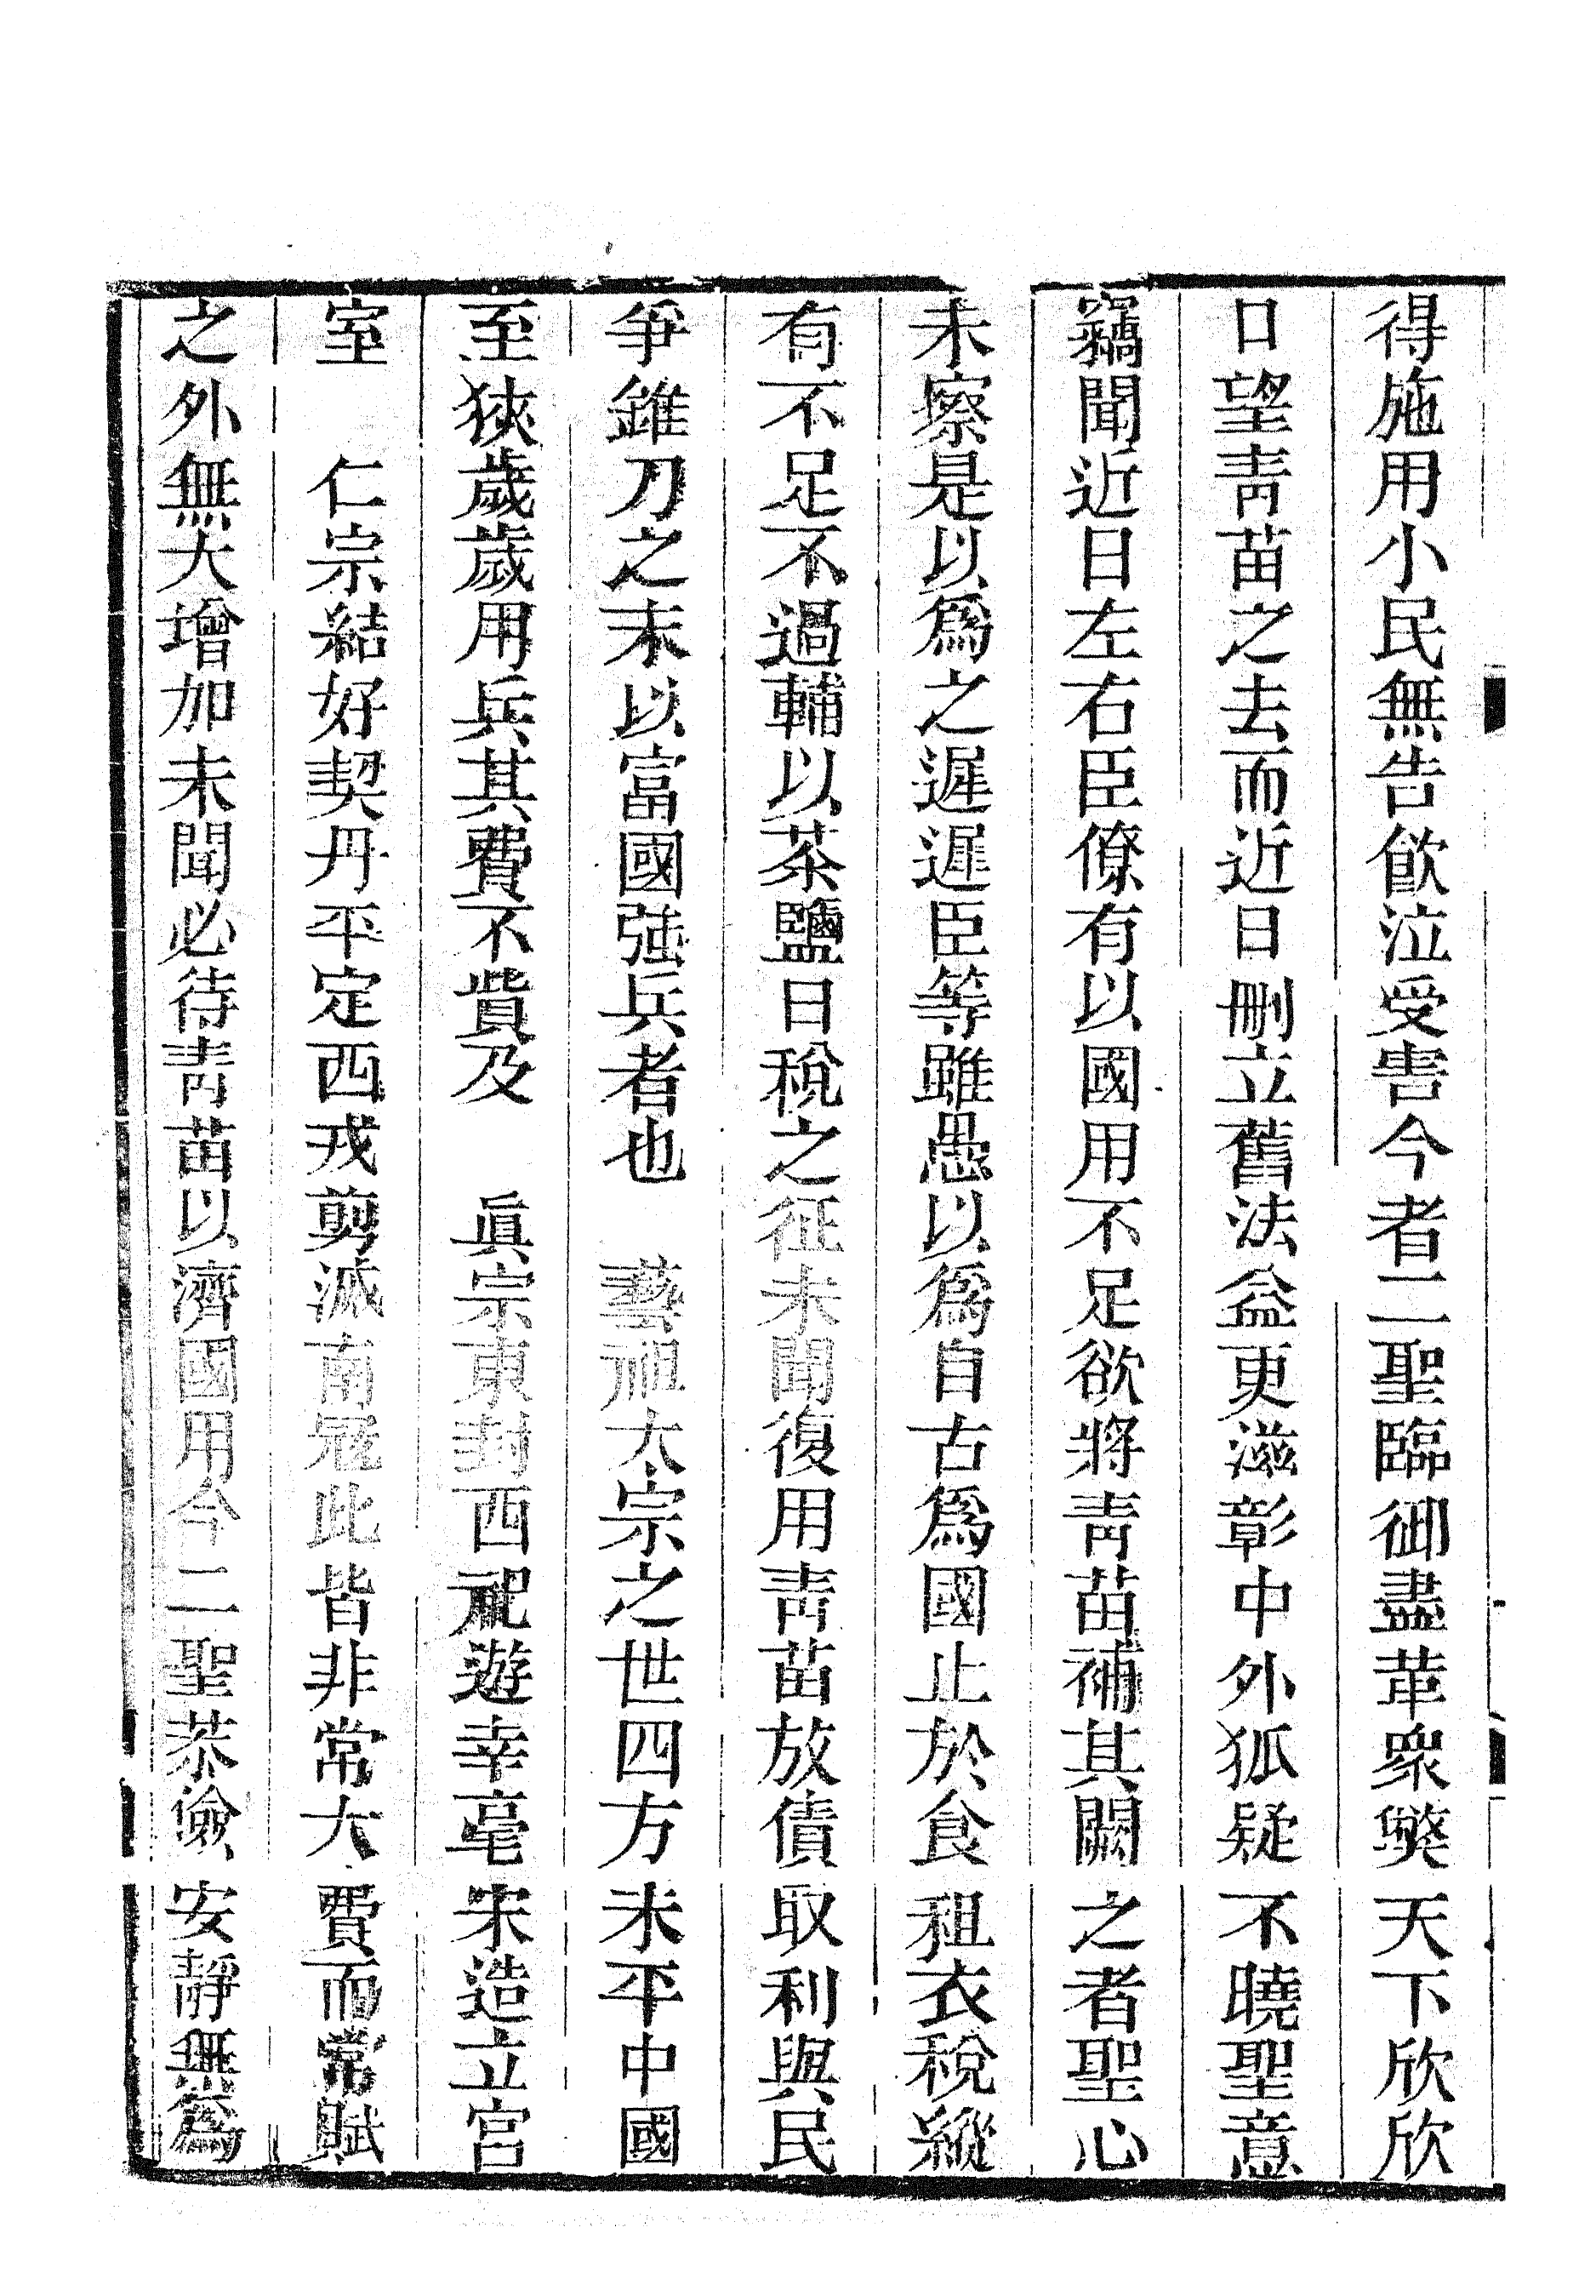 得施用小民無告飮泣受害今者二聖臨御盡革衆獘天下欣欣
口望靑苗之去而近日刪立舊法益更滋彰中外狐疑不曉聖意
竊聞近日左右臣僚有以國用不足欲將靑苗補其闕之者聖心
未察是以爲之遲遲臣等雖愚以爲自古爲國止於食租衣稅縱
有不足不過輔以茶鹽日稅之征未聞復用靑苗放債取利與民
爭錐刀之末以富國強兵者也　藝祖太宗之世四方未平中國
至狹歲歲用兵其費不貲及　眞宗東封西祀遊幸亳宋造立宮
室　仁宗結好契丹平定西戎剪滅南寇此皆非常大費而常賦
之外無大增加未聞必待靑苗以濟國用今二聖恭儉安靜無爲